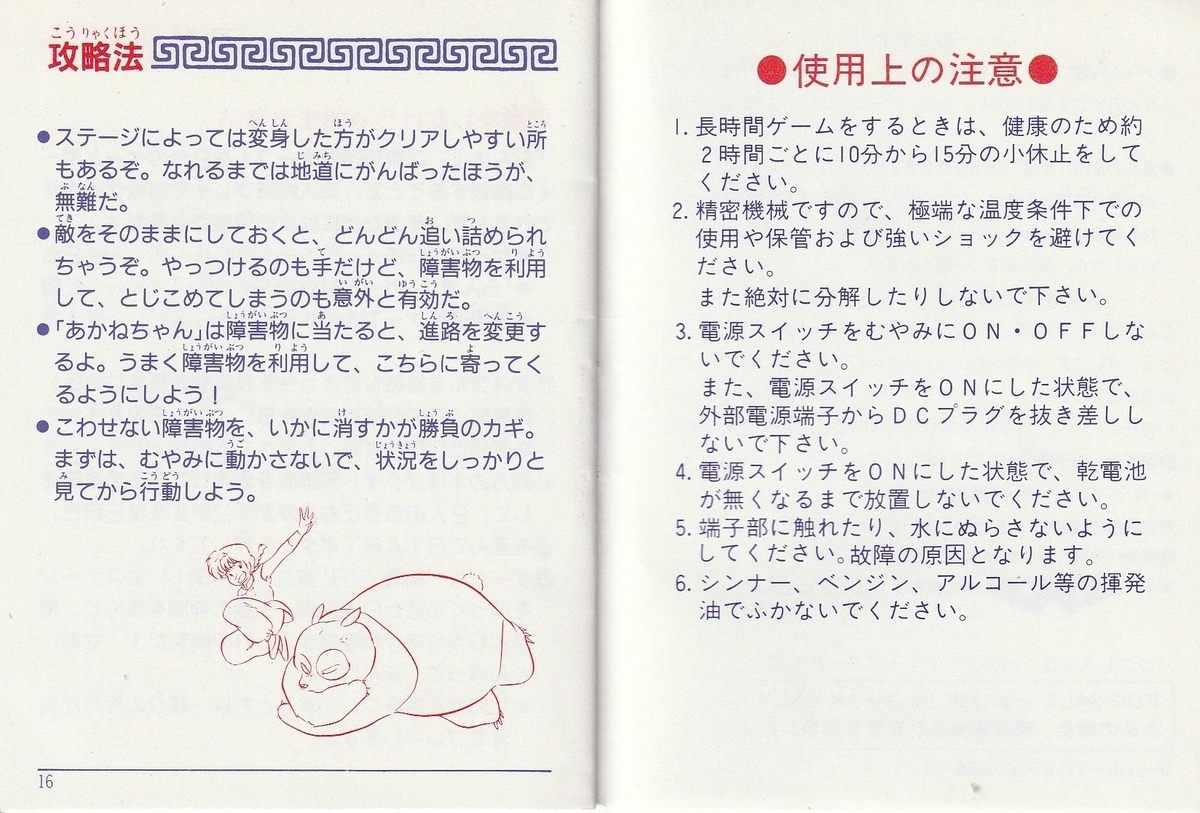 攻略法
こうりゃくほう
●ステージによっては変身した方がクリアしやすい所
もあるぞ。なれるまでは地道にがんばったほうが、
無難だ。
●敵をそのままにしておくと、どんどん追い詰められ
ちゃうぞ。やっつけるのも手だけど、障害物を利用
して、とじこめてしまうのも意外と有効だ。
●「あかねちゃん」は障害物に当たると、進路を変更す
るよ。うまく障害物を利用して、こちらに寄ってく
るようにしよう！
●こわせない障害物を、いかに消すかが勝負のカギ。
まずは、むやみに動かさないで、状況をしっかりと
見てから行動しよう。
16
●使用上の注意●
1. 長時間ゲームをするときは、健康のため約
2時間ごとに10分から15分の小休止をして
ください。
2. 精密機械ですので、極端な温度条件下での
使用や保管および強いショックを避けてく
ださい。
また絶対に分解したりしないで下さい。
3. 電源スイッチをむやみにＯＮ・ＯＦＦしな
いでください。
また、電源スイッチをＯＮにした状態で、
外部電源端子からＤＣプラグを抜き差しし
ないで下さい。
4. 電源スイッチをＯＮにした状態で、乾電池
が無くなるまで放置しないでください。
5. 端子部に触れたり、水にぬらさないように
してください。故障の原因となります。
6. シンナー、ベンジン、アルコール等の揮発
油でふかないでください。